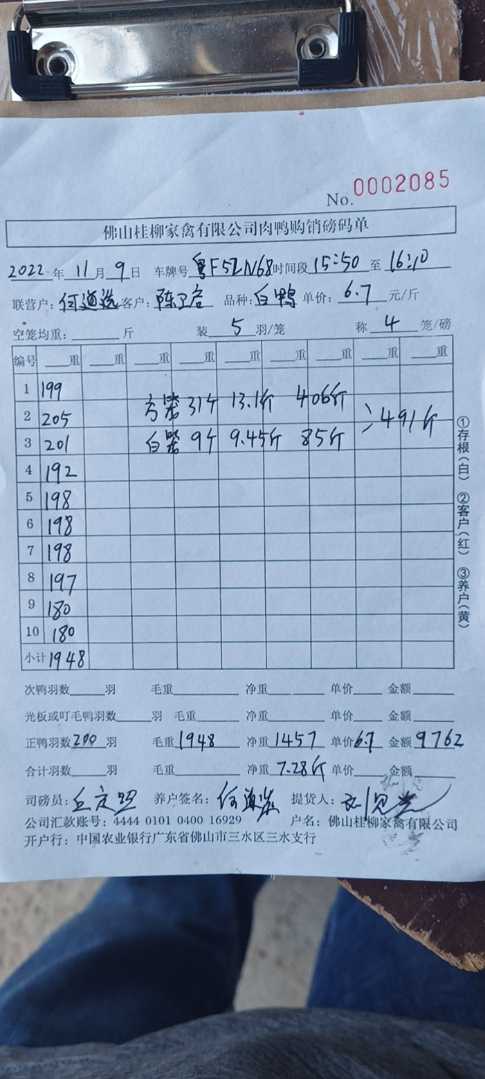 No. 0002085
佛山桂柳家禽有限公司肉鸭购销磅码单
2022 年 11 月 9 日 车牌号 粤F5LN68 时间段 15:50 至 16:10
联营户: 何道 客户: 陈 品种: 白鸭 单价: 6.7 元/斤
空笼均重: 斤 装 5 羽/笼 称 4 笼/磅
编号 重 重 重 重 重 重 重 重 重
1 199
方笼 31个 13.1斤 406斤
2 205
491斤
3 201 白笼 9个 9.45斤 85斤
4 192
5 198
6 198
7 198
8 197
9 180
10 180
小计 1948
①存根(白) ②客户(红) ③养户(黄)
次鸭羽数 羽 毛重 净重 单价 金额
光板或叮毛鸭羽数 羽 毛重 净重 单价 金额
正鸭羽数 200 羽 毛重 1948 净重 1457 单价 6.7 金额 9762
合计羽数 羽 毛重 净重 7.28斤 单价 金额
司磅员: 养户签名: 何 提货人:
公司汇款账号: 4444 0101 0400 16929 户名: 佛山桂柳家禽有限公司
开户行: 中国农业银行广东省佛山市三水区三水支行